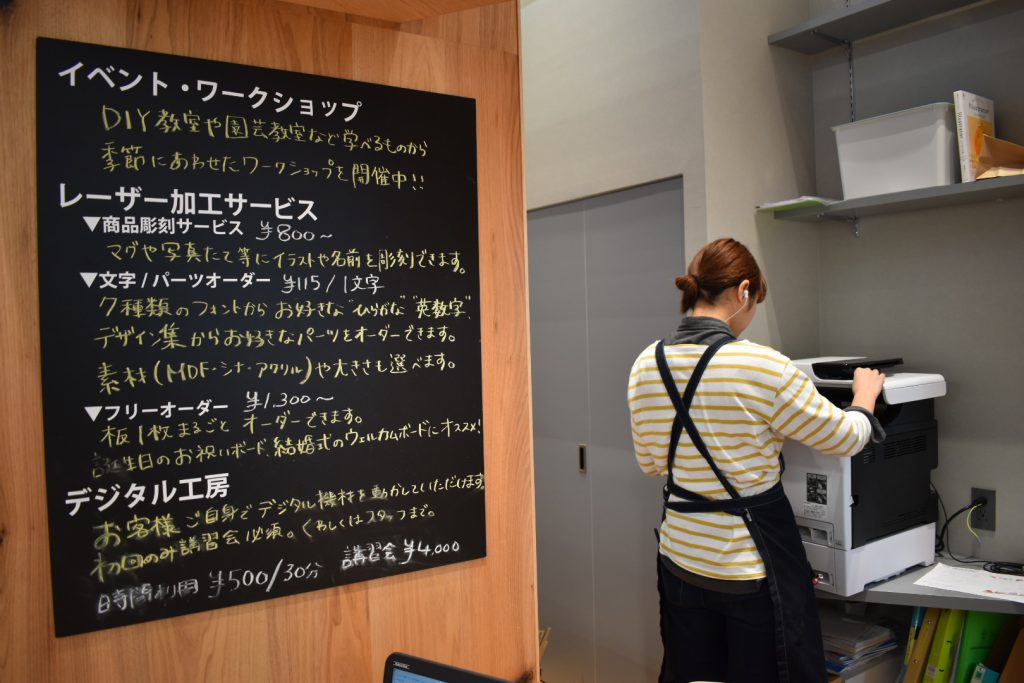 イベント・ワークショップ
DIY教室や園芸教室など学べるものから
季節にあわせたワークショップを開催中!!
レーザー加工サービス
▼商品彫刻サービス ¥800～
マグや写真たて等にイラストや名前を彫刻できます。
▼文字/パーツオーダー ¥115/1文字
7種類のフォントからお好きな"ひらがな""英数字"、
デザイン集からお好きなパーツをオーダーできます。
素材(MDF・シナ・アクリル)や大きさも選べます。
▼フリーオーダー ¥1,300～
板1枚まるごとオーダーできます。
誕生日のお祝いボード、結婚式のウェルカムボードにオススメ!
デジタル工房
お客様ご自身でデジタル機材を動かしていただけます。
初回のみ講習会必須。くわしくはスタッフまで。
時間利用 ¥500/30分 講習会 ¥4,000